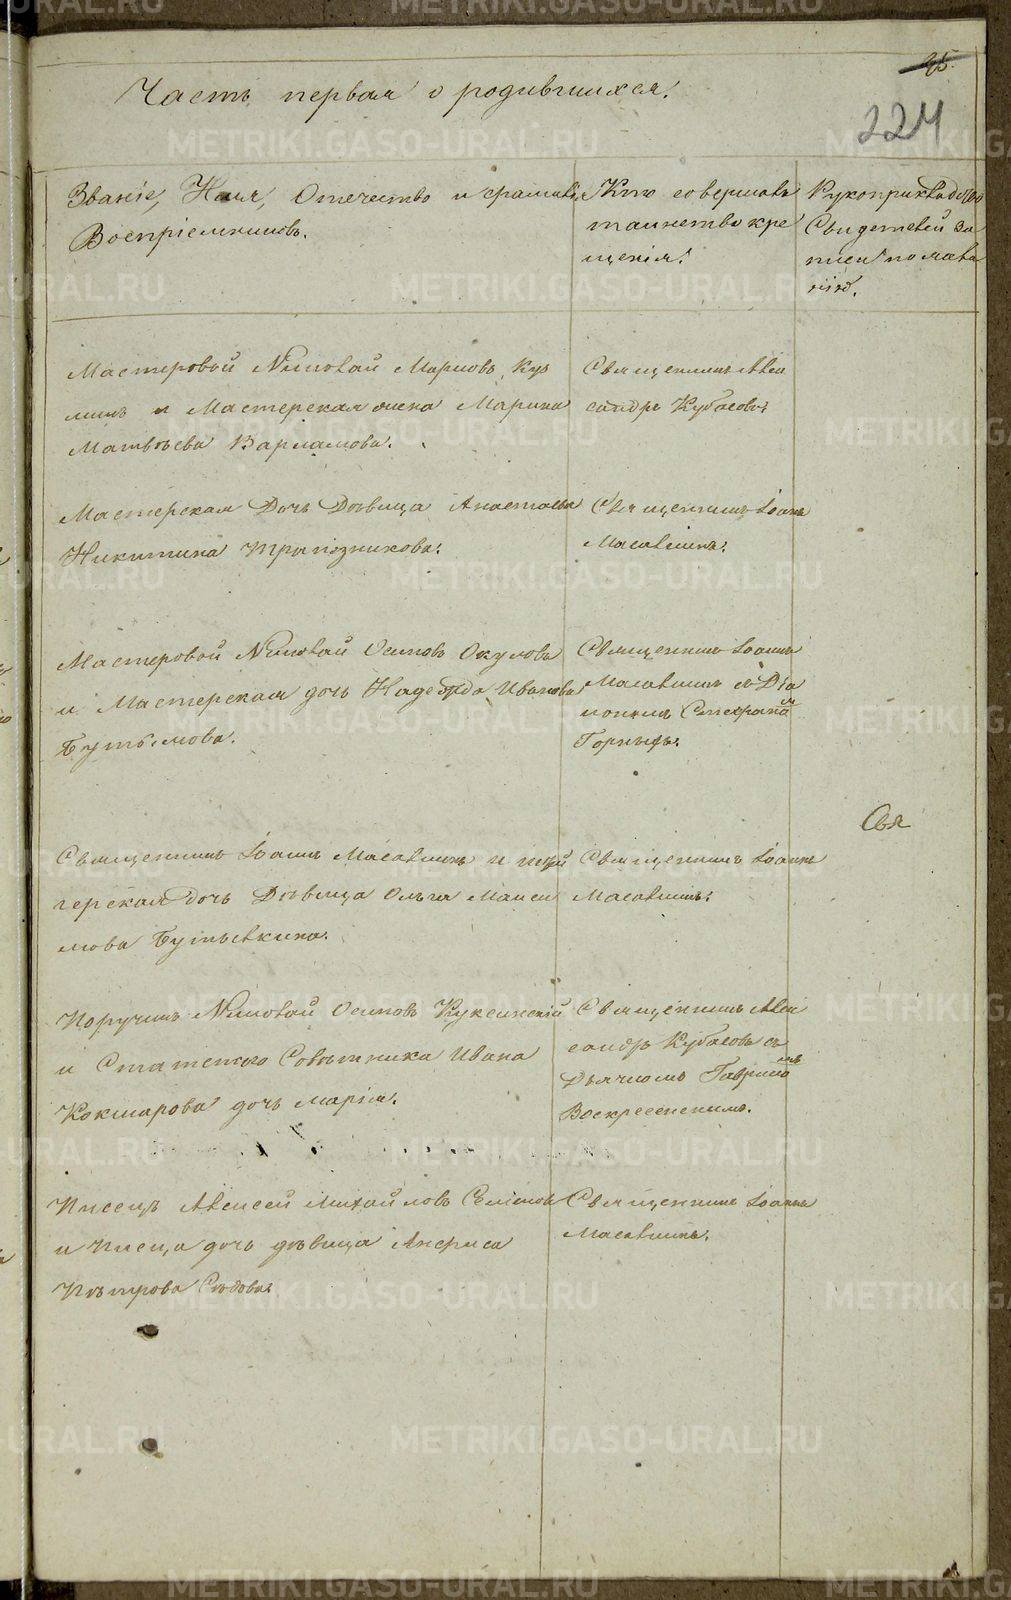 85.
224
Часть первая о родившихся.
Званіе, Имя, Отечество и фамилія
Воспріемниковъ.
Кто совершалъ
таинство кре
щенія.
Рукоприкладство
Свидетелей за
писи по жела
нію.
Мастеровой Николай Марковъ Куз
минъ и Мастерская жена Марина
Матвѣева Варламова.
Священникъ Алек
сандръ Кубасовъ.
Мастерская Дочь Дѣвица Анастасья
Никитина Трапѣзникова.
Священникъ Іоаннъ
Масловскій
Мастеровой Николай Осиповъ Окуловъ
и Мастерская дочь Надежда Иванова
Священникъ Іоаннъ
съ Діа
кономъ Стефаномъ
Горныхъ.
Священникъ Іоаннъ и
герская дочь Дѣвица Ольга Макси
мова
Священникъ Іоаннъ
Свя
Поручикъ Николай Осиповъ Куксинскій
и Статского Совѣтника Ивана
Кокшарова дочь Марія.
Священникъ Алек
сандръ Кубасовъ съ
Дьячкомъ Гавриломъ
Воскресенскимъ.
Писецъ Алексей Михайловъ
и Писца дочь дѣвица Анфиса
Пѣтрова Сѣдова.
Священникъ Іоаннъ
METRIKI.GASO-URAL.RU